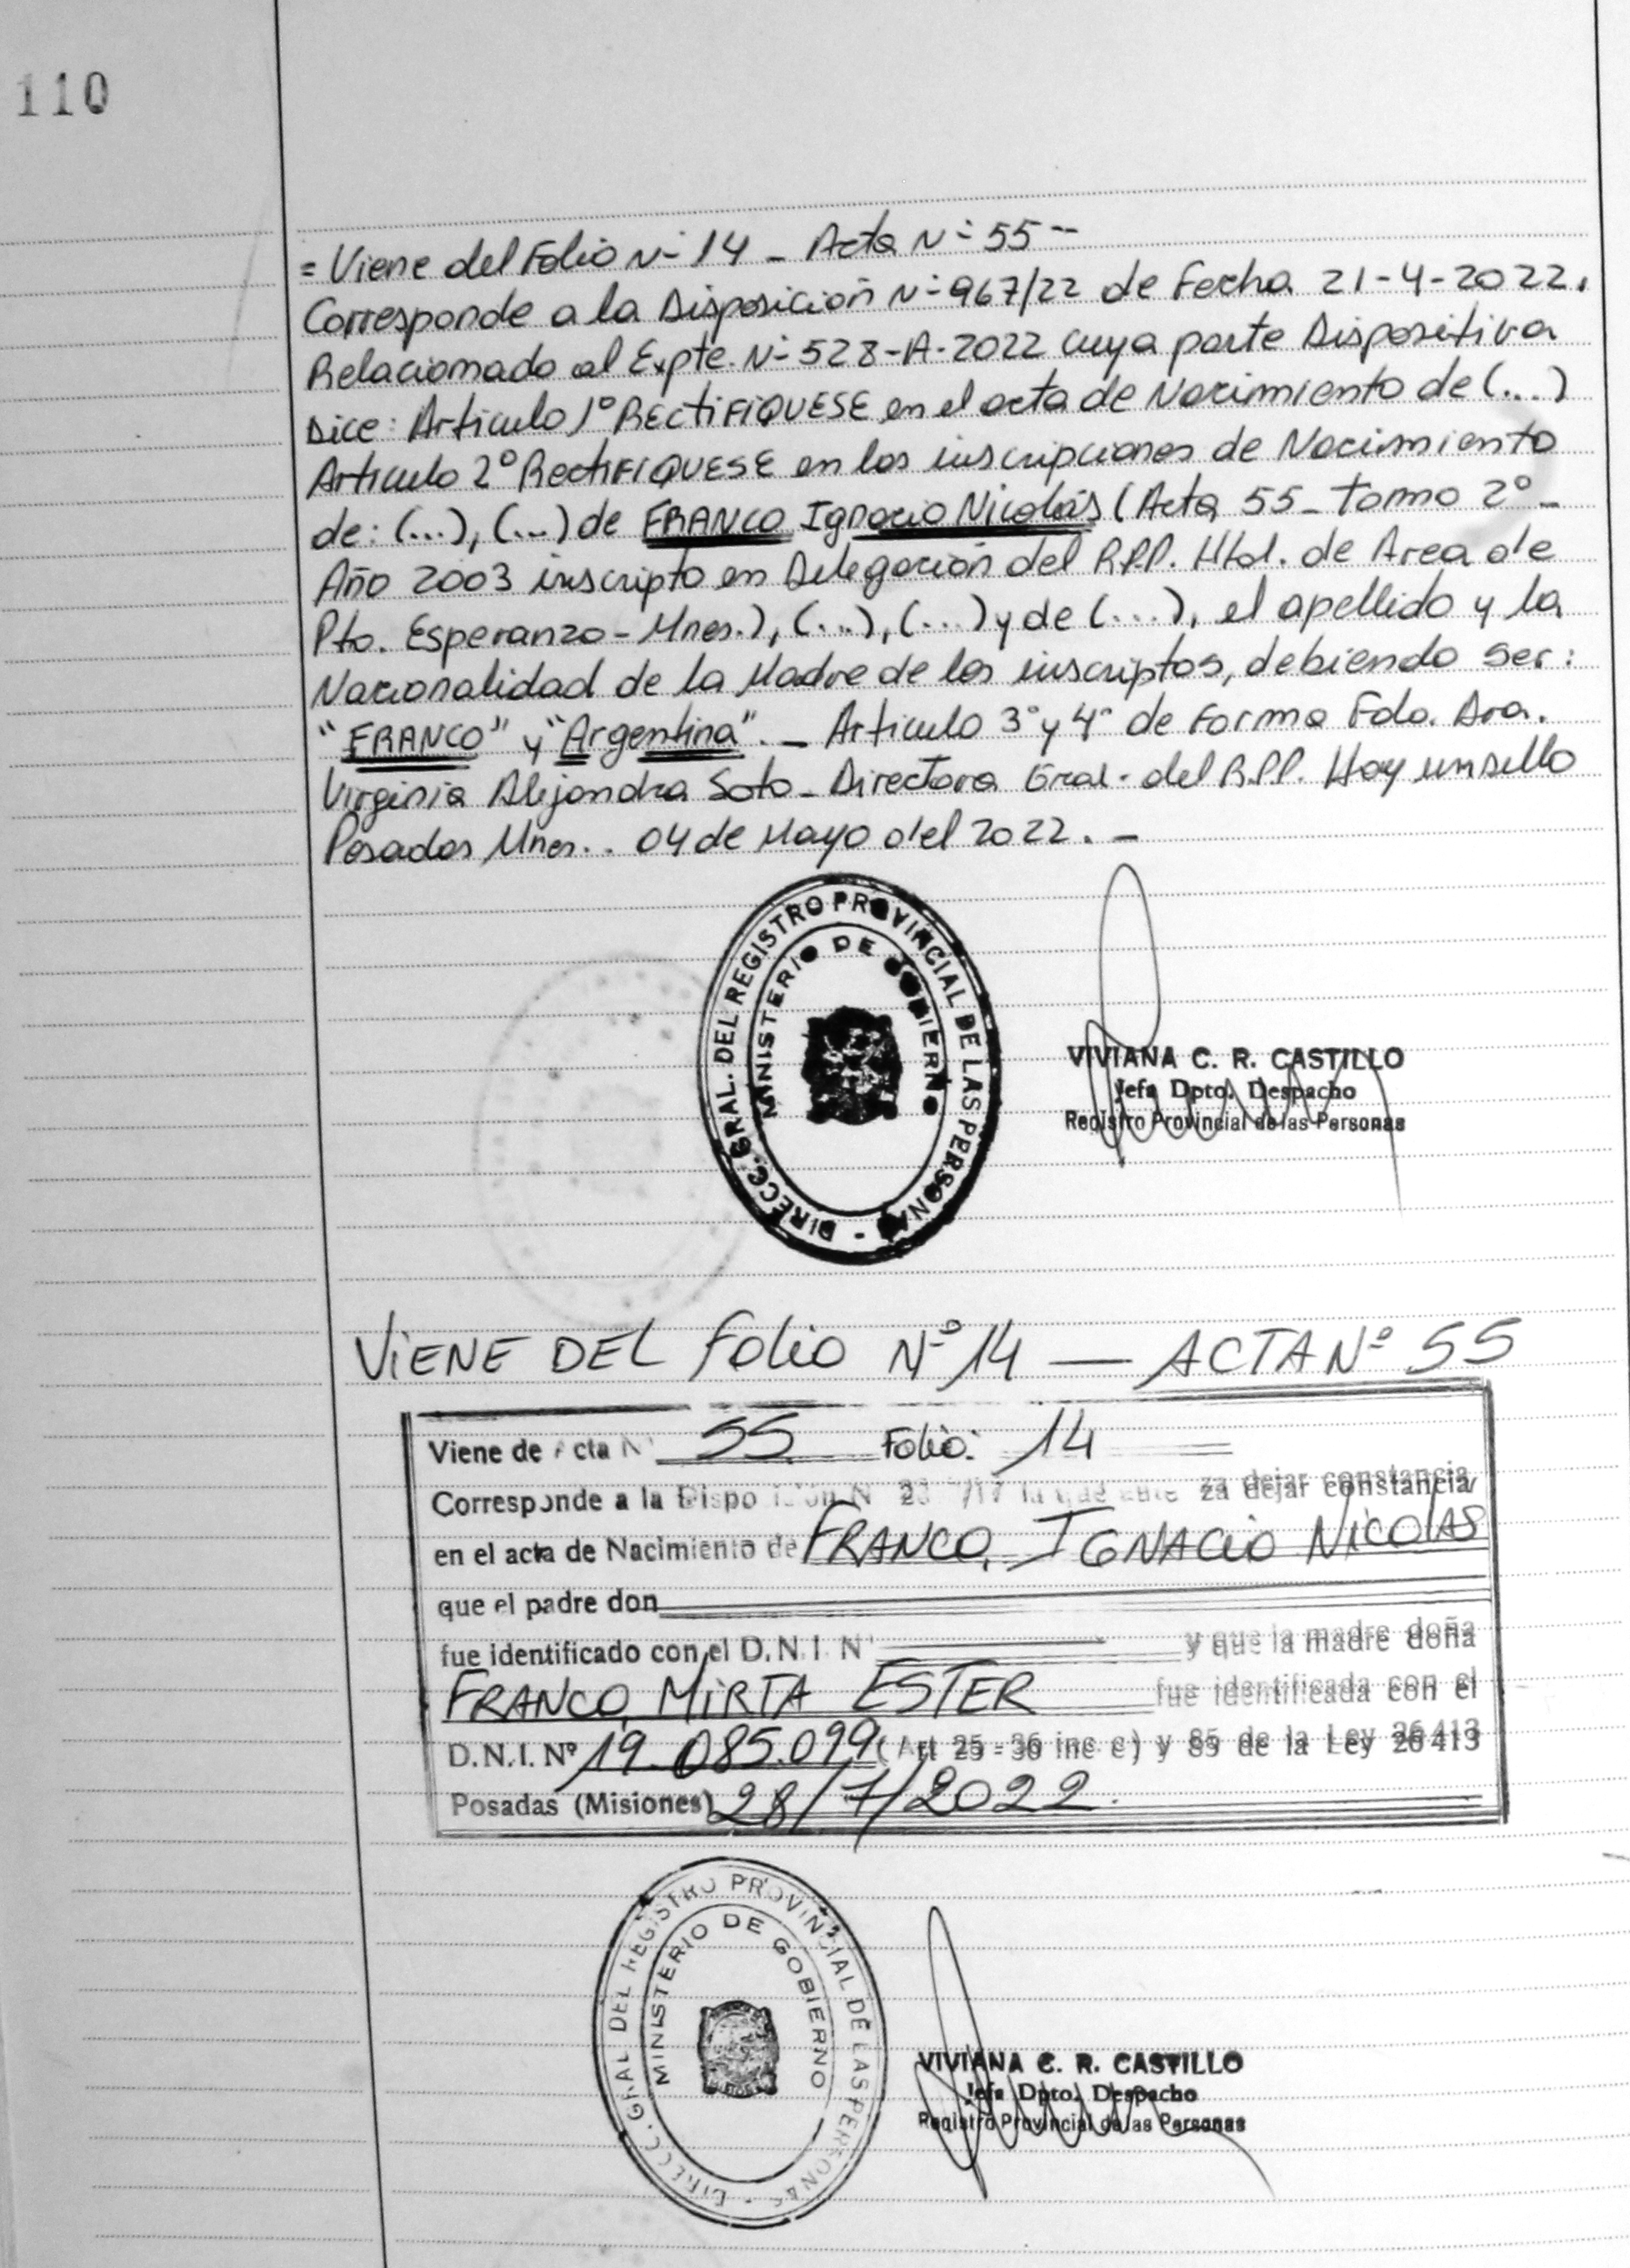 110
= Viene del Folio Nº 14 - Acta Nº 55 --
Corresponde a la Disposición Nº 967/22 de Fecha 21-4-2022.
Relacionado al Expte. Nº 528-A-2022 cuya parte Dispositiva
Dice: Articulo 1º RECTIFIQUESE en el acta de Nacimiento de (...)
Articulo 2º RectIFIQUESE en las inscripciones de Nacimiento
de: (...), (...) de FRANCO Ignacio Nicolás (Acta 55 - tomo 2º -
Año 2003 inscripto en Delegación del R.P.P. Htal. de Area de
Pto. Esperanza - Mnes.), (...), (...) y de (...), el apellido y la
Nacionalidad de la Madre de los inscriptos, debiendo ser:
"FRANCO" y "Argentina". - Articulo 3º y 4º de Forma Fdo. Dra.
Virginia Alejandra Soto - Directora Gral. del R.P.P. Hay un sello
Posadas Mnes.. 04 de Mayo del 2022. -
DIRECC. GRAL. DEL REGISTRO PROVINCIAL DE LAS PERSONAS -
MINISTERIO DE GOBIERNO
VIVIANA C. R. CASTILLO
Jefa Dpto. Despacho
Registro Provincial de las Personas
VIENE DEL Folio Nº 14 — ACTA Nº 55
Viene de Acta Nº 55 Folio: 14
Corresponde a la Disposición N /17 la que za dejar constancia
en el acta de Nacimiento de FRANCO, IGNACIO NICOLAS
que el padre don
fue identificado con el D.N.I. N° y que la madre doña
FRANCO, MIRTA ESTER fue identificada con el
D.N.I. Nº 19.085.099 (Art 25 - 36 inc c) y 85 de la Ley 26413
Posadas (Misiones) 28/7/2022.
DIRECC. GRAL DEL REGISTRO PROVINCIAL DE LAS PERSONAS -
MINISTERIO DE GOBIERNO
VIVIANA C. R. CASTILLO
Jefa Dpto. Despacho
Registro Provincial de las Personas